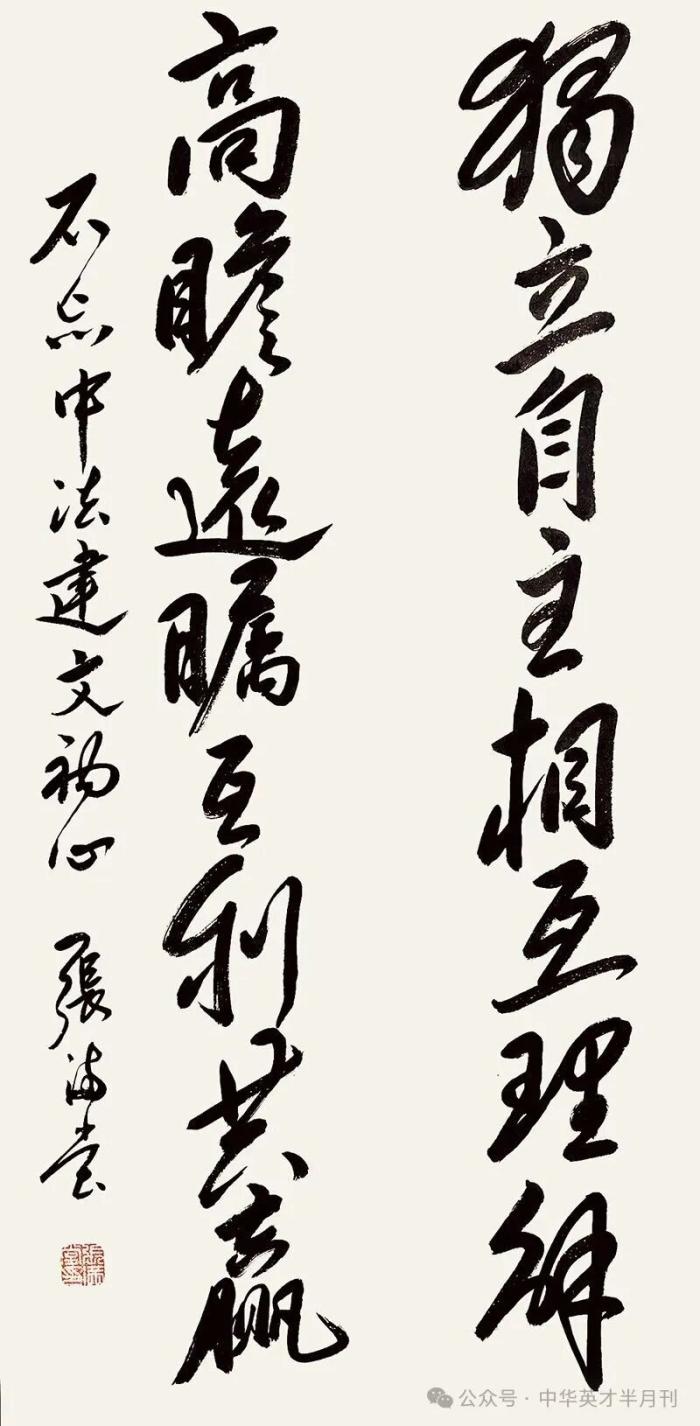 獨立自主相互理解
高瞻遠矚互利共贏
不忘中法建交初心 張滿堂
公众号·中华英才半月刊